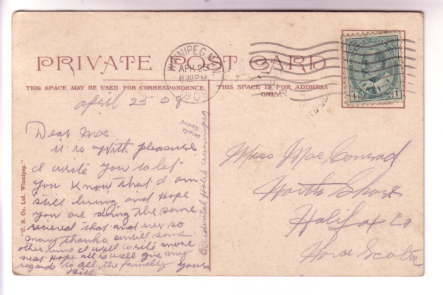 PRIVATE POST CARD
WINNIPEG, MAN.
THIS SPACE MAY BE USED FOR CORRESPONDENCE
THIS SPACE IS FOR ADDRESS
ONLY.
April 25 08
Dear Mae.
it is with pleasure
I write you to let
you know that I am
still living and hope
you are doing the same
received that and
many thanks
other time it will write more
next hope all is well give my
regards to all the family yours
Will
Miss Mae Conrad
North Shore
Halifax Co
Nova Scotia
Co. Ltd. Winnipeg.
1
1